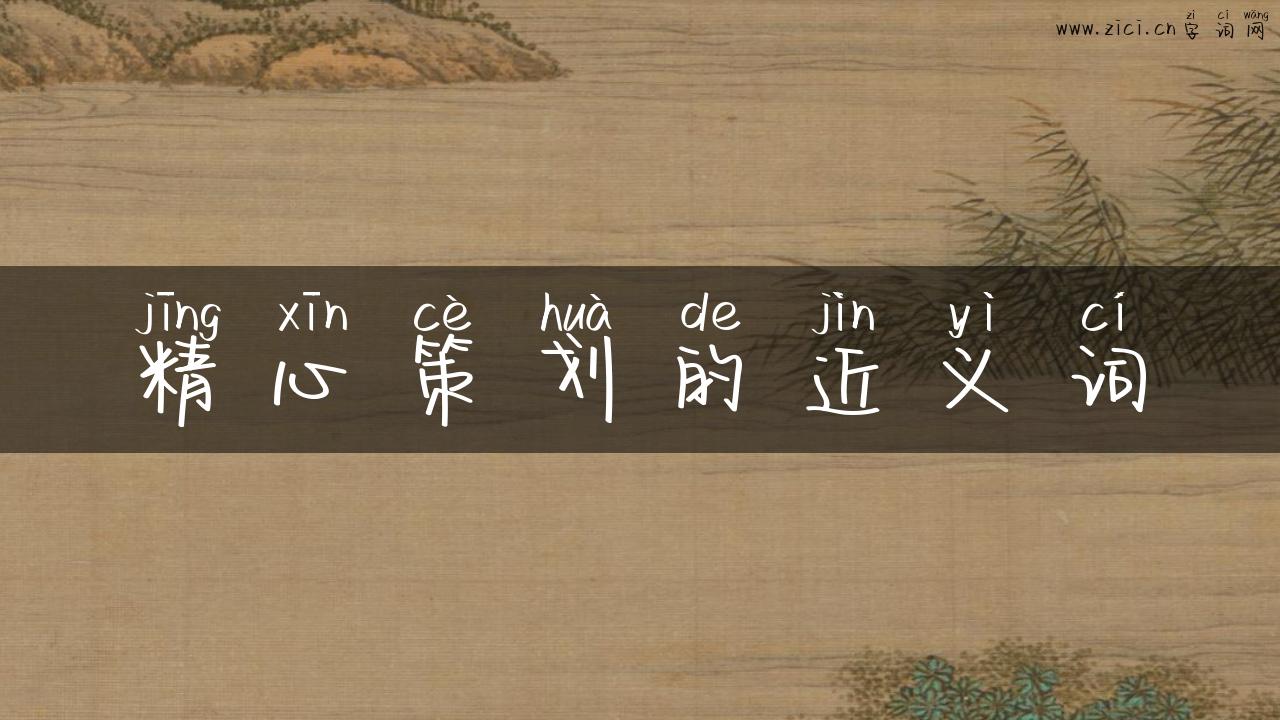 zì cí wǎng
www.zici.cn 字词网
jīng xīn cè huà de jìn yì cí
精心策划的近义词